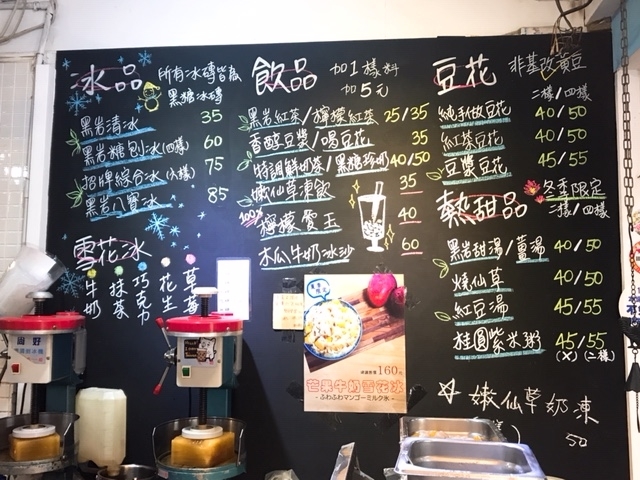 冰品 所有冰磚皆為
黑糖冰磚
黑岩清冰 35
黑岩糖刨冰(四樣) 60
招牌綜合冰(六樣) 75
黑岩八寶冰 85
雪花冰
牛奶 抹茶 巧克力 花生 草莓
飲品 加1樣料
加5元
黑岩紅茶/檸檬紅茶 25/35
香醇豆漿/喝豆花 35
特調鮮奶茶/黑糖珍奶 40/50
嫩仙草凍飲 35
100% 檸檬愛玉 40
木瓜牛奶冰沙 60
豆花 非基改黃豆
二樣/四樣
純手做豆花 40/50
紅茶豆花 40/50
豆漿豆花 45/55
熱甜品 冬季限定
二樣/四樣
黑岩甜湯/薑湯 40/50
燒仙草 40/50
紅豆湯 45/55
桂圓紫米粥 45/55
(X) (二樣)
☆ 嫩仙草奶凍
50
160
芒果牛奶雪花冰
-ふわふわマンゴーミルク氷-
固好